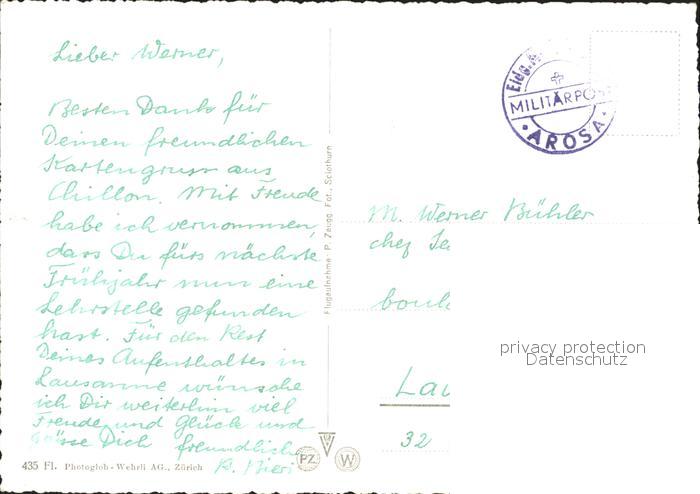 Lieber Werner,
Besten Dank für
Deinen freundlichen
Kartengruss aus
Chillon. Mit Freude
habe ich vernommen,
dass Du fürs nächste
Frühjahr nun eine
Lehrstelle gefunden
hast. Für den Rest
Deines Aufenthaltes in
Lausanne wünsche
ich Dir weiterhin viel
Freude und Glück und
grüsse Dich freundlich
435 Fl. Photoglob-Wehrli AG., Zürich
PZ
W
Flugaufnahme P. Zaugg Fot., Solothurn
MILITÄRPOS
AROSA
M. Werner Bühler
chef
Lau
32
privacy protection
Datenschutz